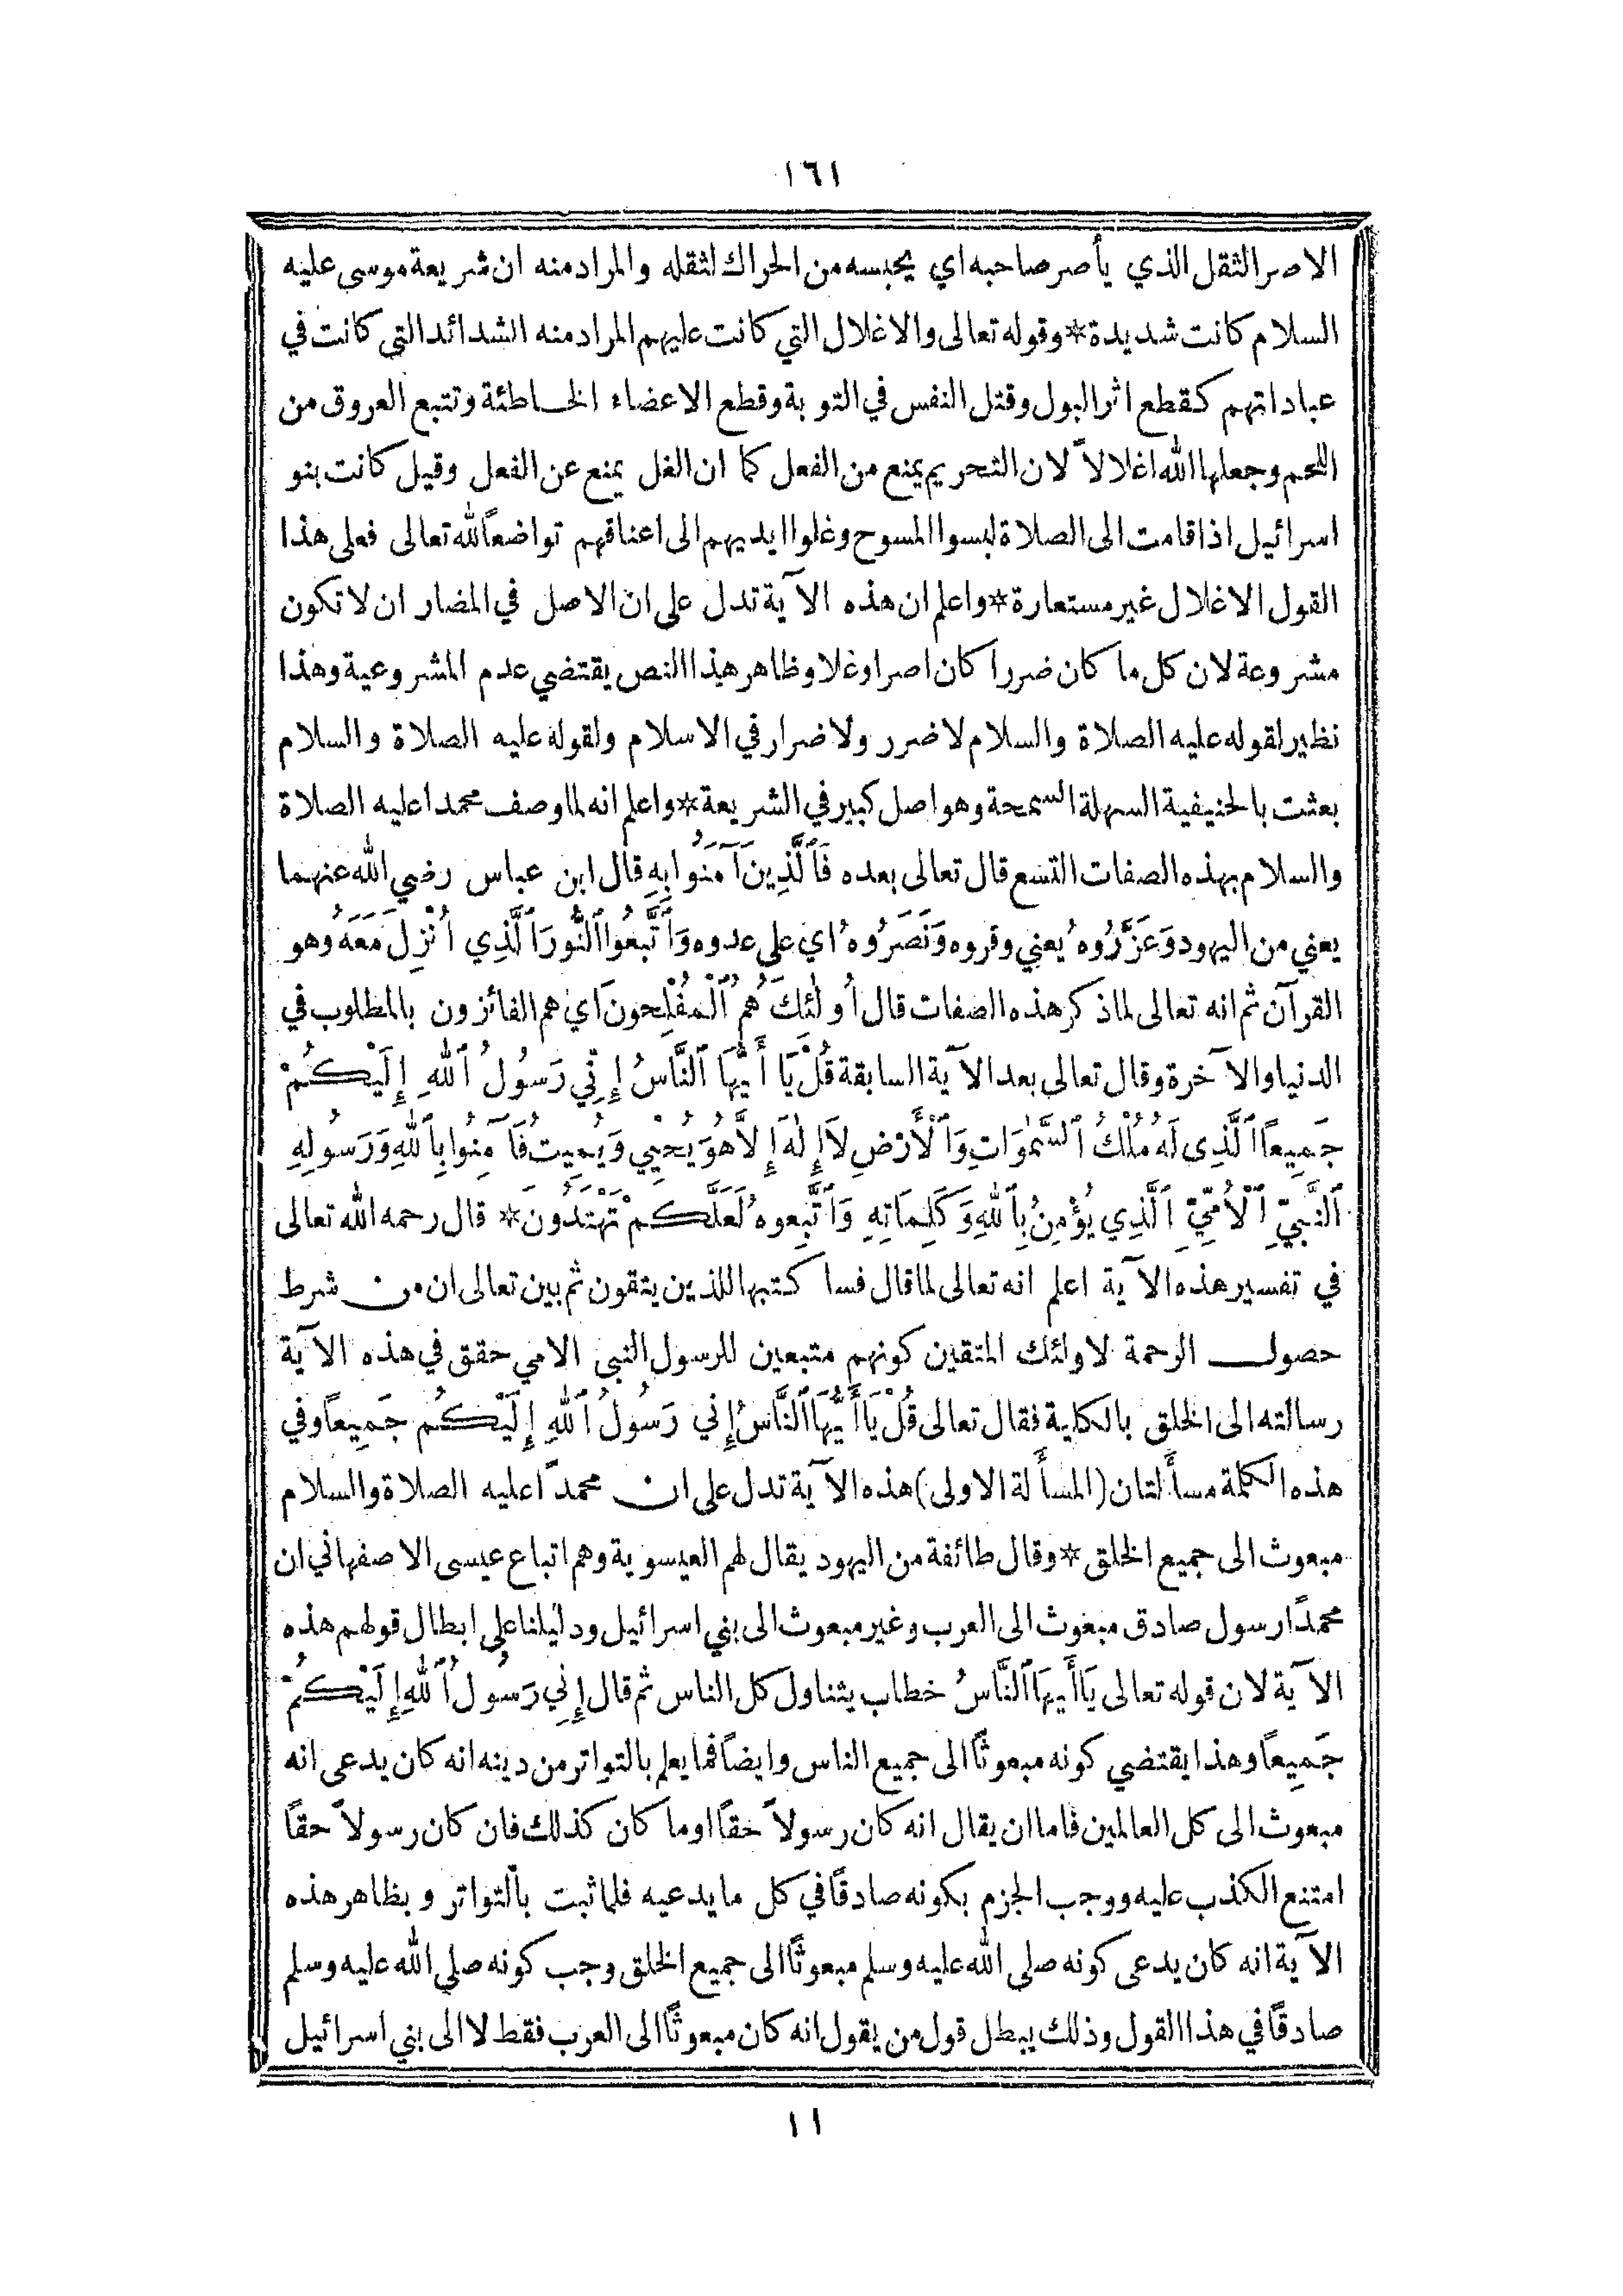 ١٦١
الاصر الثقل الذي يأصر صاحبه اي يحبسه من الحراك لثقله والمراد منه ان شريعة موسى عليه
السلام كانت شديدة * وقوله تعالى والاغلال التي كانت عليهم المراد منه الشدائد التي كانت في
عباداتهم كقطع اثر البول وقتل النفس في التوبة وقطع الاعضاء الخاطئة وتتبع العروق من
اللحم وجعلها الله اغلالاً لان التحريم يمنع من الفعل كما ان الغل يمنع عن الفعل وقيل كانت بنو
اسرائيل اذا قامت الى الصلاة لبسوا المسوح وغلوا ايديهم الى اعناقهم تواضعاً لله تعالى فعلى هذا
القول الاغلال غير مستعارة * واعلم ان هذه الآية تدل على ان الاصل في المضار ان لا تكون
مشروعة لان كل ما كان ضررا كان اصرا وغلا وظاهر هذا النص يقتضي عدم المشروعية وهذا
نظير لقوله عليه الصلاة والسلام لا ضرر ولا ضرار في الاسلام ولقوله عليه الصلاة والسلام
بعثت بالحنيفية السهلة السمحة وهو اصل كبير في الشريعة * واعلم انه لما وصف محمدا عليه الصلاة
والسلام بهذه الصفات التسع قال تعالى بعده فَٱلَّذِينَ آمَنُوا بِهِ قال ابن عباس رضي الله عنهما
يعني من اليهود وَعَزَّرُوهُ يعني وقروه وَنَصَرُوهُ اي على عدوه وَٱتَّبَعُوا ٱلنُّورَ ٱلَّذِي أُنْزِلَ مَعَهُ وهو
القرآن ثم انه تعالى لما ذكر هذه الصفات قال أُولٰئِكَ هُمُ ٱلْمُفْلِحونَ اي هم الفائزون بالمطلوب في
الدنيا والآخرة وقال تعالى بعد الآية السابقة قُلْ يَا أَيُّهَا ٱلنَّاسُ إِنِّي رَسُولُ ٱللهِ إِلَيْكُمْ
جَمِيعاً ٱلَّذِى لَهُ مُلْكُ ٱلسَّمٰوَاتِ وَٱلْأَرْضِ لَا إِلٰهَ إِلَّا هُوَ يُحْيِي وَيُمِيتُ فَآمِنُوا بِٱللهِ وَرَسُولِهِ
ٱلنَّبِيِّ ٱلْأُمِّيِّ ٱلَّذِي يُؤْمِنُ بِٱللهِ وَكَلِمَاتِهِ وَٱتَّبِعوهُ لَعَلَّكُمْ تَهْتَدُونَ * قال رحمه الله تعالى
في تفسير هذه الآية اعلم انه تعالى لما قال فسا كتبها للذين يتقون ثم بين تعالى ان من شرط
حصول الرحمة لاولئك المتقين كونهم متبعين للرسول النبى الامي حقق في هذه الآية
رسالته الى الخلق بالكلية فقال تعالى قُلْ يَا أَيُّهَا ٱلنَّاسُ إِني رَسُولُ ٱللهِ إِلَيْكُم جَمِيعاً وفي
هذه الكلمة مسألتان (المسألة الاولى) هذه الآية تدل على ان محمدًا عليه الصلاة والسلام
مبعوث الى جميع الخلق * وقال طائفة من اليهود يقال لهم العيسوية وهم اتباع عيسى الاصفهاني ان
محمدًا رسول صادق مبعوث الى العرب وغير مبعوث الى بني اسرائيل ودليلنا على ابطال قولهم هذه
الآية لان قوله تعالى يَا أَيهَا ٱلنَّاسُ خطاب يتناول كل الناس ثم قال إِنِي رَسُولُ ٱللهِ إِلَيْكُمْ
جَمِيعاً وهذا يقتضي كونه مبعوثاً الى جميع الناس وايضاً فما يعلم بالتواتر من دينه انه كان يدعى انه
مبعوث الى كل العالمين فاما ان يقال انه كان رسولاً حقاً او ما كان كذلك فان كان رسولاً حقاً
امتنع الكذب عليه ووجب الجزم بكونه صادقاً في كل ما يدعيه فلما ثبت بالتواتر وبظاهر هذه
الآية انه كان يدعى كونه صلى الله عليه وسلم مبعوثًا الى جميع الخلق وجب كونه صلى الله عليه وسلم
صادقاً في هذا القول وذلك يبطل قول من يقول انه كان مبعوثاً الى العرب فقط لا الى بني اسرائيل
١١